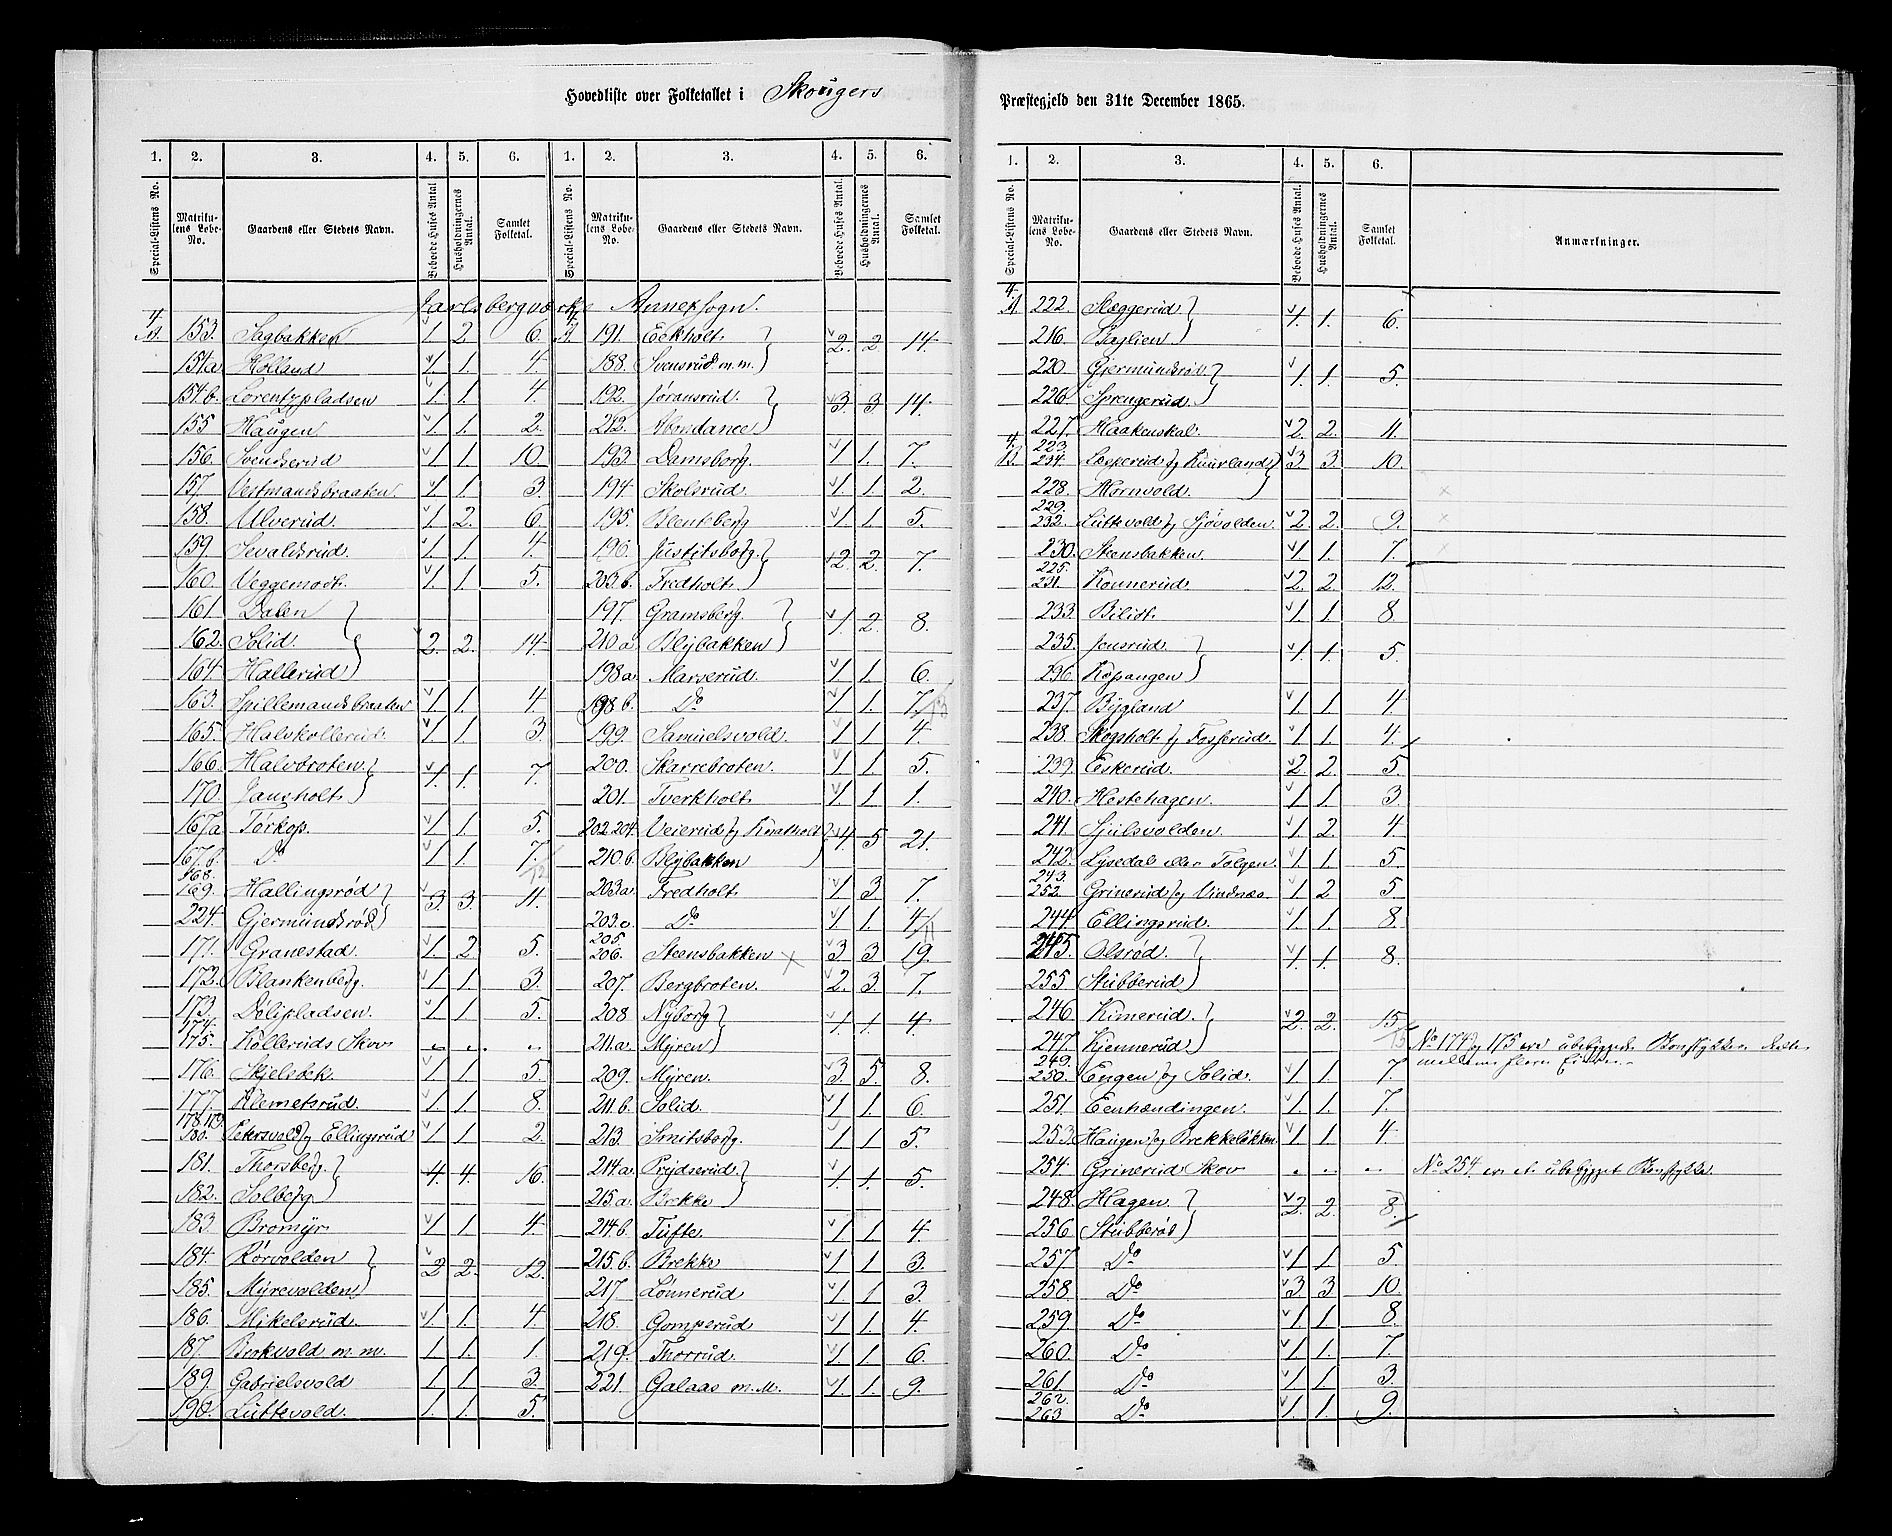 Hovedliste over Folketallet i Skougers Præstegjeld den 31te December 1865.
1. 2. 3. 4. 5. 6. 1. 2. 3. 4. 5. 6.
Special-Listens No. Matrikulens Løbe-No. Gaardens eller Stedets Navn. Beboede Huses Antal. Husholdningernes Antal. Samlet Folketal. Special-Listens No. Matrikulens Løbe-No. Gaardens eller Stedets Navn. Beboede Huses Antal. Husholdningernes Antal. Samlet Folketal.
Jarlsbergværks Annexsogn.
4.
A. 153. Sagbakken 1. 2 6.
154a Holland 1. 1. 4.
154.b. Lorentzpladsen 1. 1. 4.
155 Haugen 1. 1. 2.
156. Svendserud 1. 1. 10.
157. Vestmandsbraaten 1. 1. 3.
158. Ulverud. 1. 2. 6.
159. Sevaldsrud. 1. 1. 4.
160. Veggemoet. 1. 1. 5.
161. Dalen
162. Solid. 2. 2. 14.
164. Hallerud
163. Spillemandsbraaten 1. 1. 4
165. Halvkollerud 1. 1. 3.
166. Halvbroten.
170. Jansholt 1. 1. 7.
167.a Torkop. 1. 1. 5.
167.b. Do 1. 1. 7. /12
168.
169. Hallingsrød 3. 3. 11.
224. Gjermundsrød
171. Granestad 1. 2. 5.
172. Blankenberg. 1. 1. 3.
173. Dølipladsen. 1. 1. 5.
174.
175. Kolleruds Skov
176. Skjelsbek. 1. 1. 5.
177. Klemetsrud. 1. 1. 8.
178.179.
180. Petersvold og Ellingsrud 1. 1. 2.
181. Thorsberg. 4. 4. 16.
182. Solberg
183. Bromyr. 1. 1. 4.
184. Rørvolden 2 2. 12.
185. Myrevolden
186. Mikelsrud. 1. 1. 4.
187. Berkvold m.m. 1. 1. 1.
189. Gabrielsvold 1. 1. 3.
190. Luttevold. 1. 1. 5.
A. 191. Eckholt. 2. 2 14.
188. Svensrud m.m.
192. Jøransrud. 3. 3. 14.
212. Abondance
193. Damsborg. 1. 1. 7.
194. Skolsrud. 1. 1. 2.
195. Blenteberg 1. 1. 5.
196. Justitsborg. 2. 2. 7.
203.b. Fredholt.
197. Gramsberg. 1. 2. 8.
210.a. Blybakken
198a. Marserud. 1. 1. 6.
198.b. Do 1. 1. 7. /13
199. Samuelsvold. 1. 1. 4.
200. Skarrebroten. 1. 1. 5.
201. Tverkholt. 1. 1. 1.
202.204. Veierud og Knatholt 4. 5. 21.
210.b. Blybakken
203a. Fredholt. 1. 3. 7.
203.c. Do 1. 1. 4. /11
205.
206. Steensbakken 3. 3 19.
207. Bergbroten. 2. 3. 7.
208 Nyborg 1. 1. 4.
211.a. Myren
209. Myren. 3. 5. 8.
211.b. Solid. 1. 1. 6.
213. Smitsborg. 1. 1. 5.
214.a. Prydserud. 1. 1. 5.
215.a. Brekke
214.b. Tufte. 1. 1. 4.
215.b. Brekke 1. 1. 3.
217. Lonnerud 1. 1. 3.
218. Gomperud. 1. 1. 4.
219. Thorrud. 1. 1. 6.
221. Galaas m.M. 1. 1. 9.
1. 2. 3. 4. 5. 6.
Special-Listens No. Matrikulens Løbe-No. Gaardens eller Stedets Navn. Beboede Huses Antal. Husholdningernes Antal. Samlet Folketal. Anmærkninger.
4.
A. 222. Skeggerud 1. 1. 6.
216. Baglien
220. Gjermundsrød. 1. 1. 5.
226. Sprengerud.
227. Haakenskal. 2. 2. 11.
4. 223.
B. 234. Lesperud og Kuurland 3. 3. 10.
228. Hornvold.
229.
232. Luttevold og Sjøvolden. 2. 2. 9.
230. Steensbakken. 1. 1. 7.
225.
231. Konnerud. 2. 2. 12.
233. Bilidt. 1. 1 8.
235. Jonsrud. 1. 1. 5.
236. Kopangen
237. Bygland 1. 1. 4.
238. Skogsholt og Fosserud. 1. 1. 4.
239. Eskerud. 2. 2. 5.
240. Hestehagen. 1. 1. 3.
241. Sjulsvolden. 1. 2. 4
242. Lysedal eller Tolgen. 1. 1. 5
243.
252. Grinerud og Vindnæs. 1. 2 5.
244. Ellingsrud. 1. 1. 8.
245. Olsrød. 1. 1. 8.
255. Stubberud
246. Kimerud. 2. 2. 15.
247. Kjennerud No 174 og 175 ere ubebyggede
249.
250. Engen og Solid. 1. 1. 7.
251. Eenhændingen. 1. 1. 7.
253. Haugen og Brekkeløkken 1. 1 4.
254. Grinerud Skov No 254 er et ubebygget
248. Hagen. 2. 2. 8.
256. Stubberød
257. Do 1. 1. 5.
258. Do 3. 3. 10.
259. Do 1. 1. 8.
260. Do 1. 1. 7.
261. Do 1. 1. 3.
262.
263 Do 1. 1. 9.